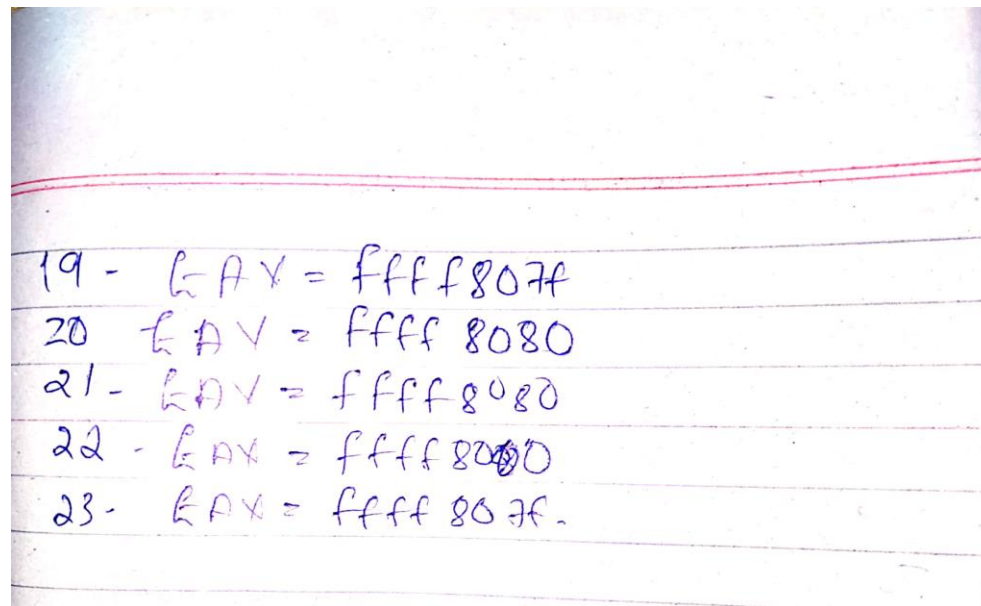 19 - EAX = ffff807f
20 EAX = ffff 8080
21 - EAX = ffff8080
22 - EAX = ffff8000
23 - EAX = ffff 807f.